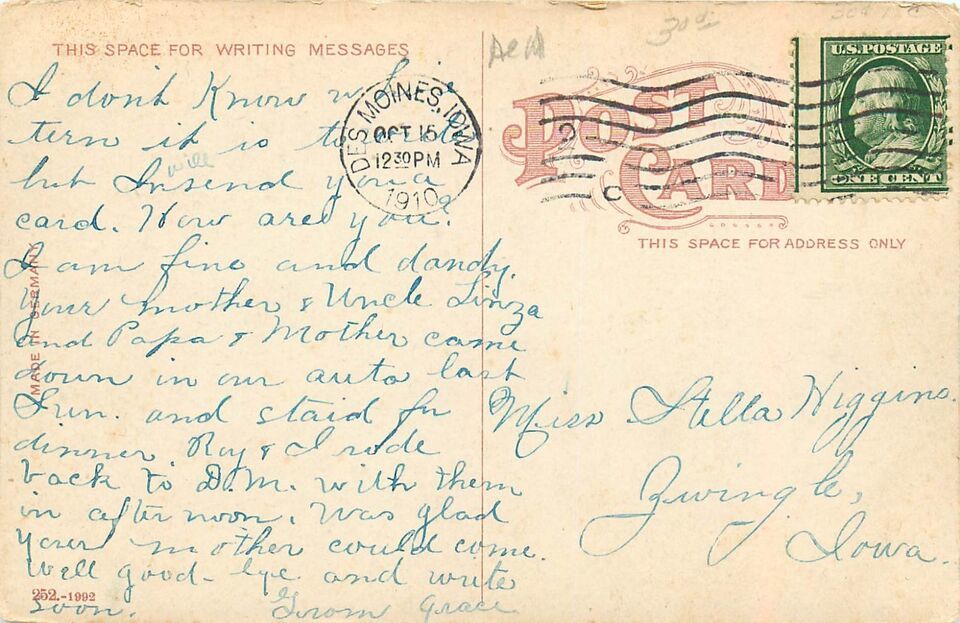 THIS SPACE FOR WRITING MESSAGES
I don't Know
tern it is to
but I will send you a
card. How are you?
I am fine and dandy.
Your mother & Uncle Linza
and Papa & Mother came
down in our auto last
Sun. and staid for
dinner. Roy & I rode
back to D.M. with them
in after noon. Was glad
your mother could come.
Well good-bye and write
soon. From Grace
MADE IN GERMANY
252.-1992
DES MOINES, IOWA
OCT 15
12 30 PM
1910
C
POST
CARD
THIS SPACE FOR ADDRESS ONLY
U.S. POSTAGE
ONE CENT
Miss Stella Higgins.
Zwingle,
Iowa.